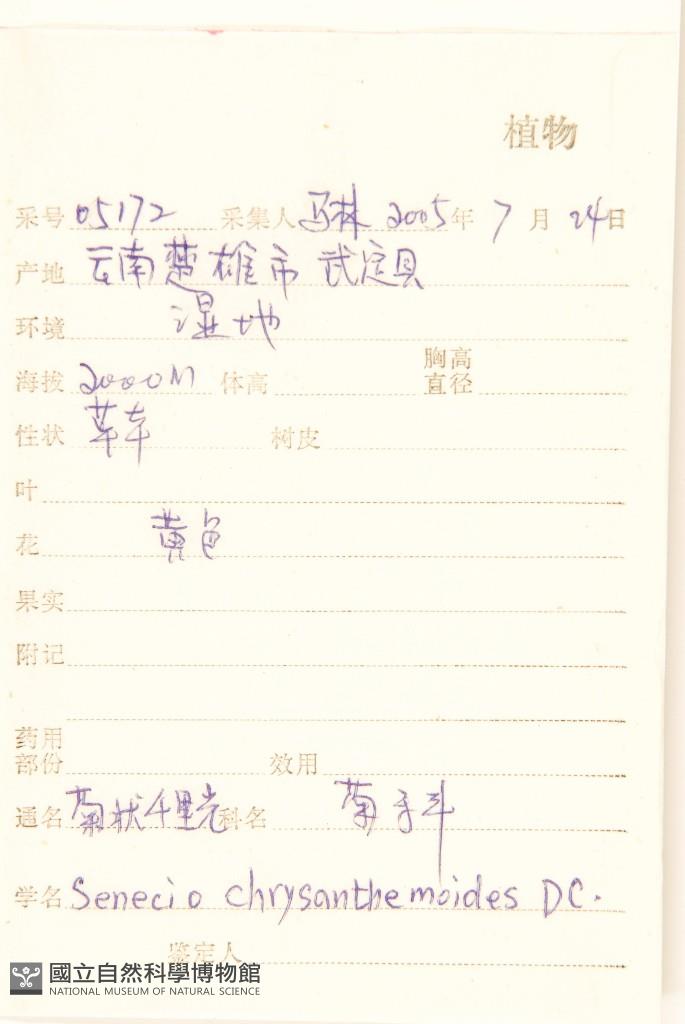 植物
采号 05172 采集人 马林 2005年 7月 24日
产地 云南楚雄市 武定县
环境 湿地
海拔 2000M 体高 胸高直径
性状 草本 树皮
叶
花 黄色
果实
附记
药用部份 效用
通名 菊状千里光 科名 菊科
学名 Senecio chrysanthemoides DC.
鉴定人
國立自然科學博物館
NATIONAL MUSEUM OF NATURAL SCIENCE